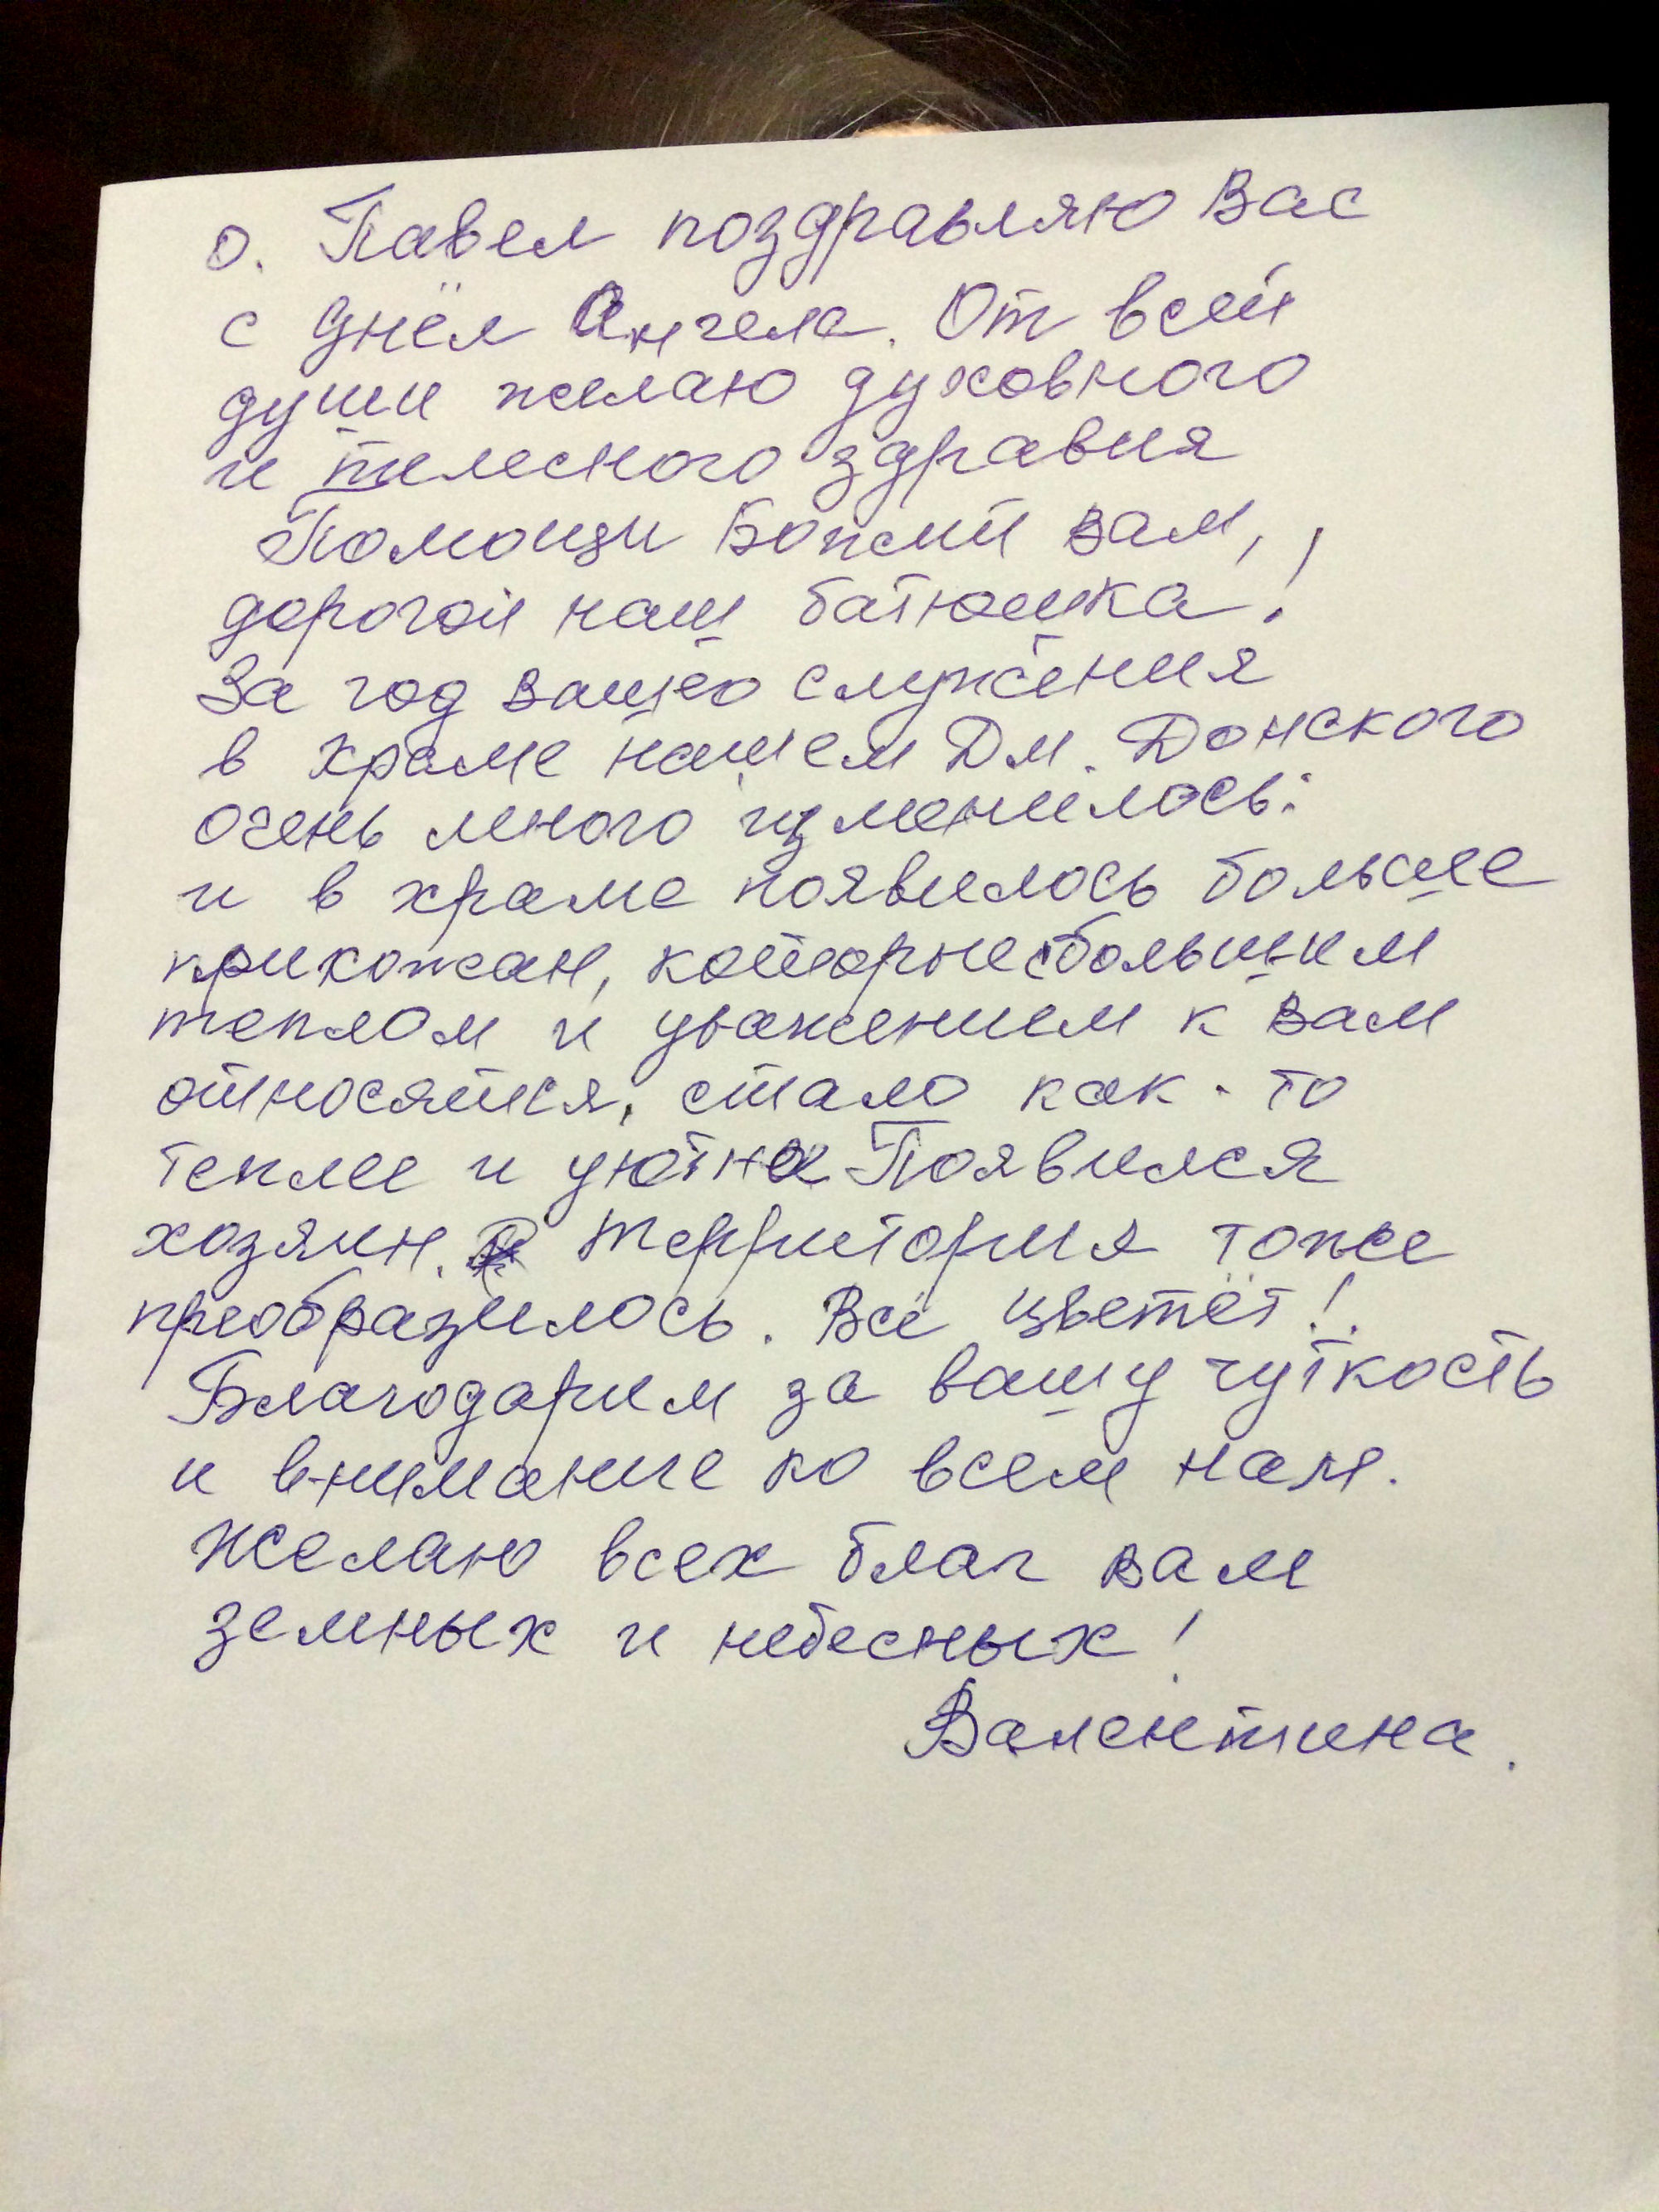 о. Павел поздравляю Вас
с днём Ангела. От всей
души желаю духовного
и телесного здравия
Помощи Божий вам,
дорогой наш батюшка!
За год вашего служения
в храме нашем Дм. Донского
очень много изменилось:
и в храме появилось больше
прихожан, которые с большим
теплом и уважением к вам
относятся, стало как-то
теплее и уютно Появился
хозяин. Территория тоже
преобразилось. Всё цветёт!
Благодарим за вашу чуткость
и внимание ко всем нам.
Желаю всех благ вам
земных и небесных!
Валентина.